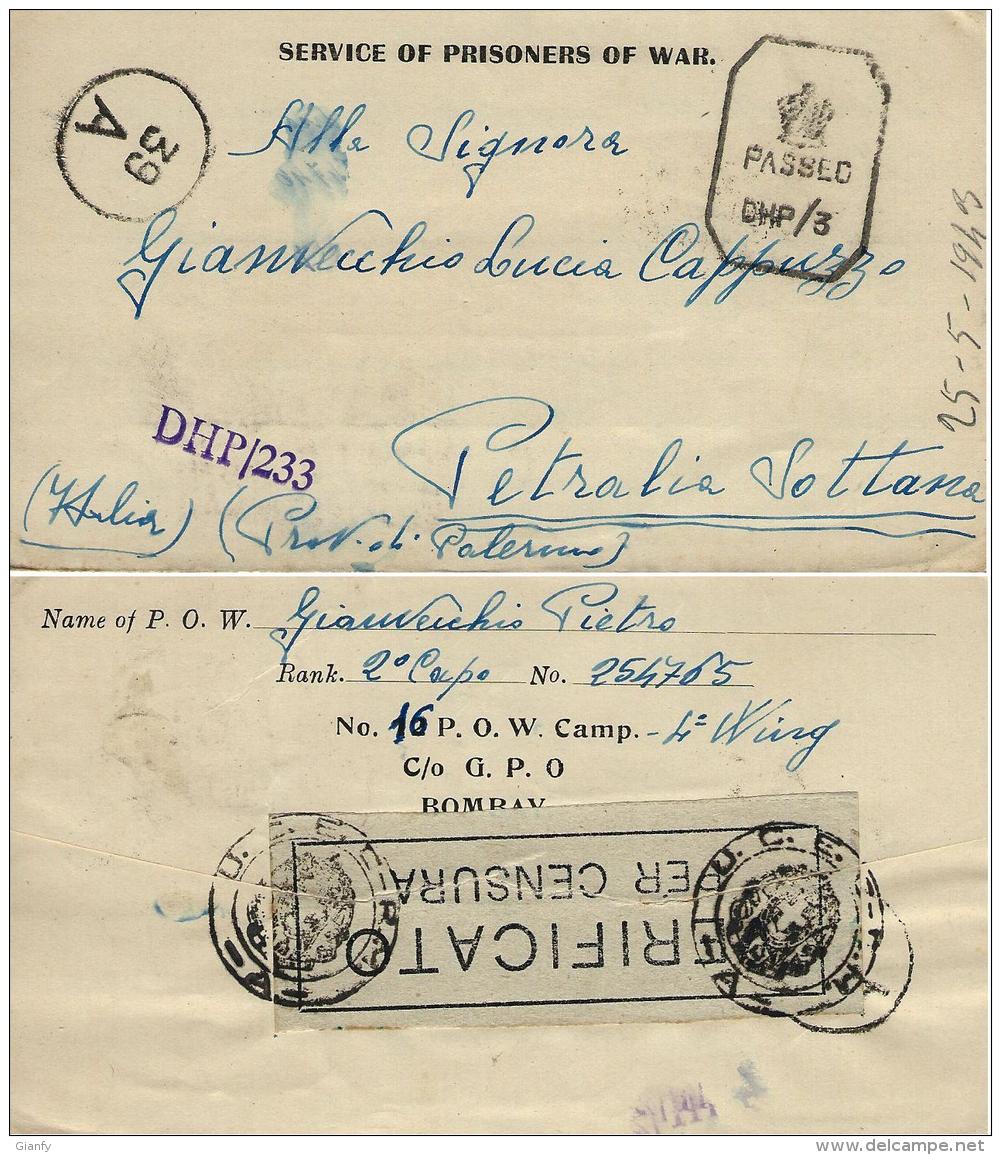 SERVICE OF PRISONERS OF WAR.
39
A
PASSED
DHP/3
Alla Signora
Gianvecchio Lucia Cappuzzo
25-5-1943
DHP/233
Petralia Sottana
(Italia) (Prov. di Palermo)
Name of P. O. W. Gianvecchio Pietro
Rank. 2º Capo No. 254765
No. 16 P. O. W. Camp. - 4ª Wing
C/o G. P. O
BOMBAY
VERIFICATO
PER CENSURA
U. C. E.
U. C. E.
Gianfy
delcampe.net